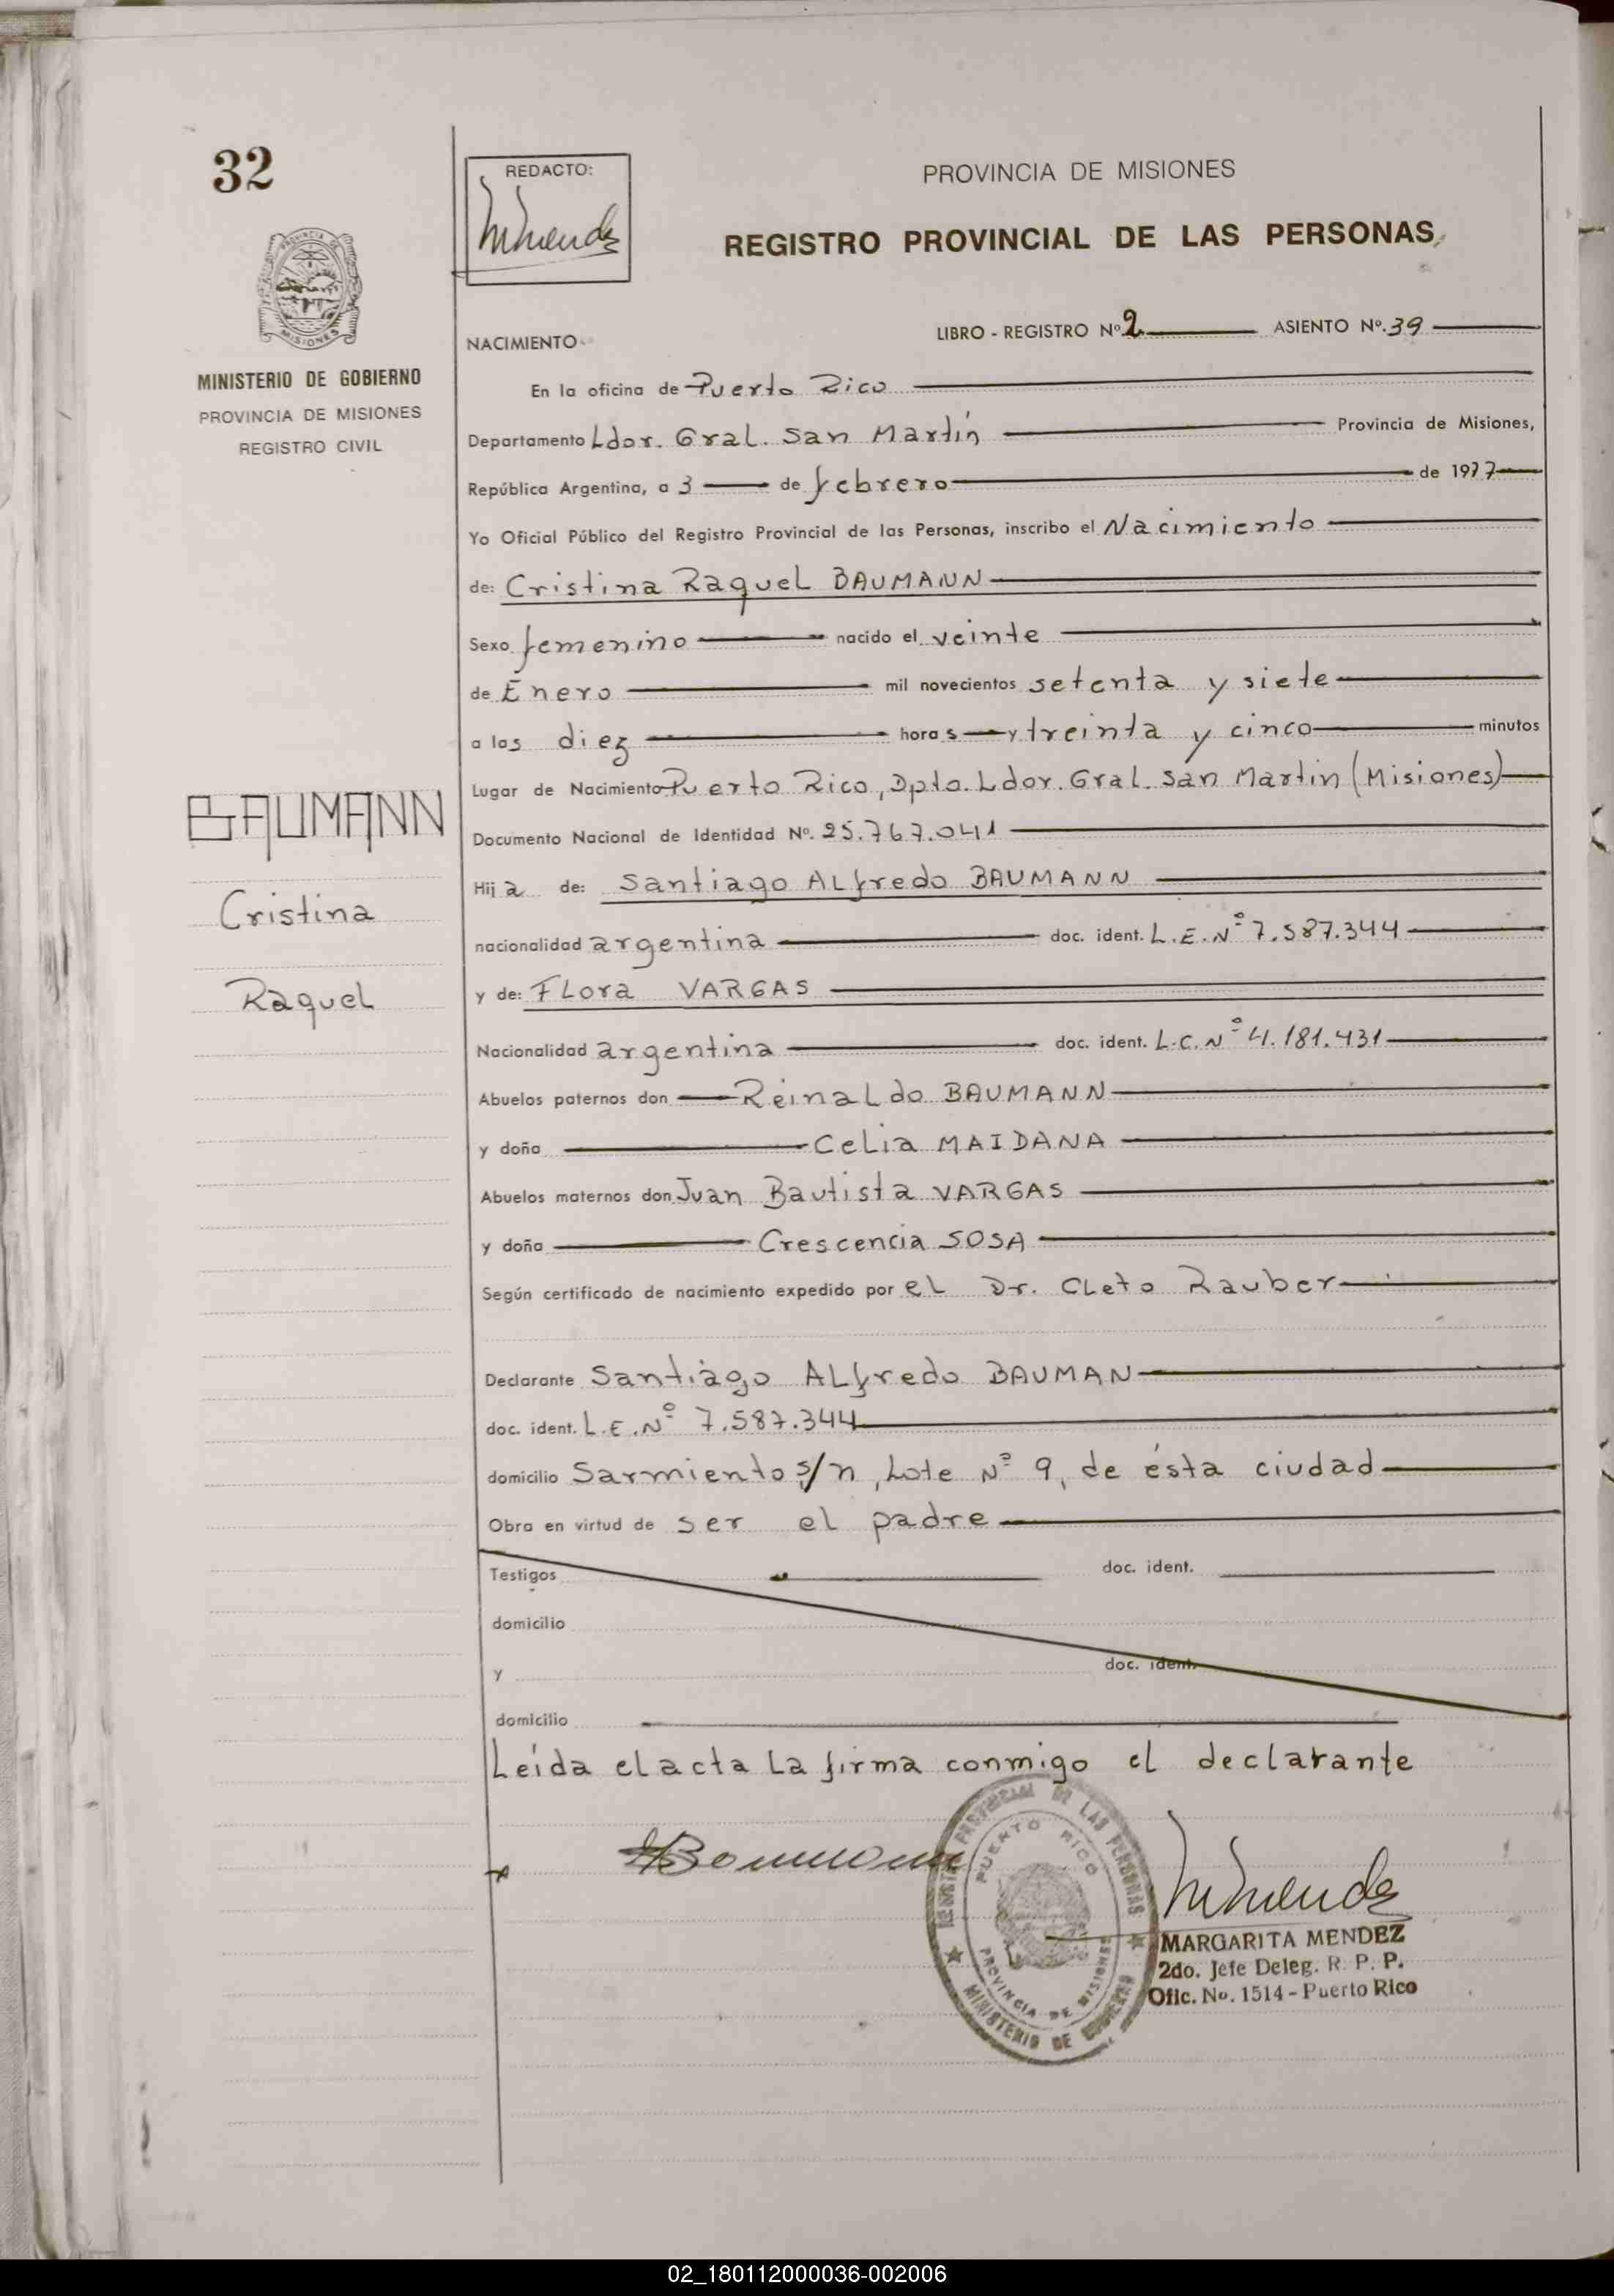 32
REDACTO:
PROVINCIA DE MISIONES
REGISTRO PROVINCIAL DE LAS PERSONAS
MISIONES
MINISTERIO DE GOBIERNO
PROVINCIA DE MISIONES
REGISTRO CIVIL
NACIMIENTO
LIBRO - REGISTRO Nº 2 ASIENTO Nº. 39
En la oficina de Puerto Rico
Departamento Ldor. Gral. San Martín Provincia de Misiones,
República Argentina, a 3 de febrero de 1977
Yo Oficial Público del Registro Provincial de las Personas, inscribo el Nacimiento
de: Cristina Raquel BAUMANN
Sexo femenino nacido el veinte
de Enero mil novecientos setenta y siete
a las diez horas y treinta y cinco minutos
Lugar de Nacimiento Puerto Rico, Dpto. Ldor. Gral. San Martin (Misiones)
BAUMANN
Cristina
Raquel
Documento Nacional de Identidad Nº. 25.767.041
Hija de: Santiago Alfredo BAUMANN
nacionalidad argentina doc. ident. L.E.Nº 7.587.344
y de: Flora VARGAS
Nacionalidad argentina doc. ident. L.C.Nº 4.181.431
Abuelos paternos don Reinaldo BAUMANN
y doña Celia MAIDANA
Abuelos maternos don Juan Bautista VARGAS
y doña Crescencia SOSA
Según certificado de nacimiento expedido por el Dr. Cleto Rauber
Declarante Santiago Alfredo BAUMAN
doc. ident. L.E.Nº 7.587.344
domicilio Sarmiento s/n, Lote Nº 9, de ésta ciudad
Obra en virtud de ser el padre
Testigos doc. ident.
domicilio
y doc. ident.
domicilio
Leída el acta la firma conmigo el declarante
REGISTRO PROVINCIAL DE LAS PERSONAS
PUERTO RICO
PROVINCIA DE MISIONES
MINISTERIO DE GOBIERNO
MARGARITA MENDEZ
2do. Jefe Deleg. R. P. P.
Ofic. No. 1514 - Puerto Rico
02_180112000036-002006